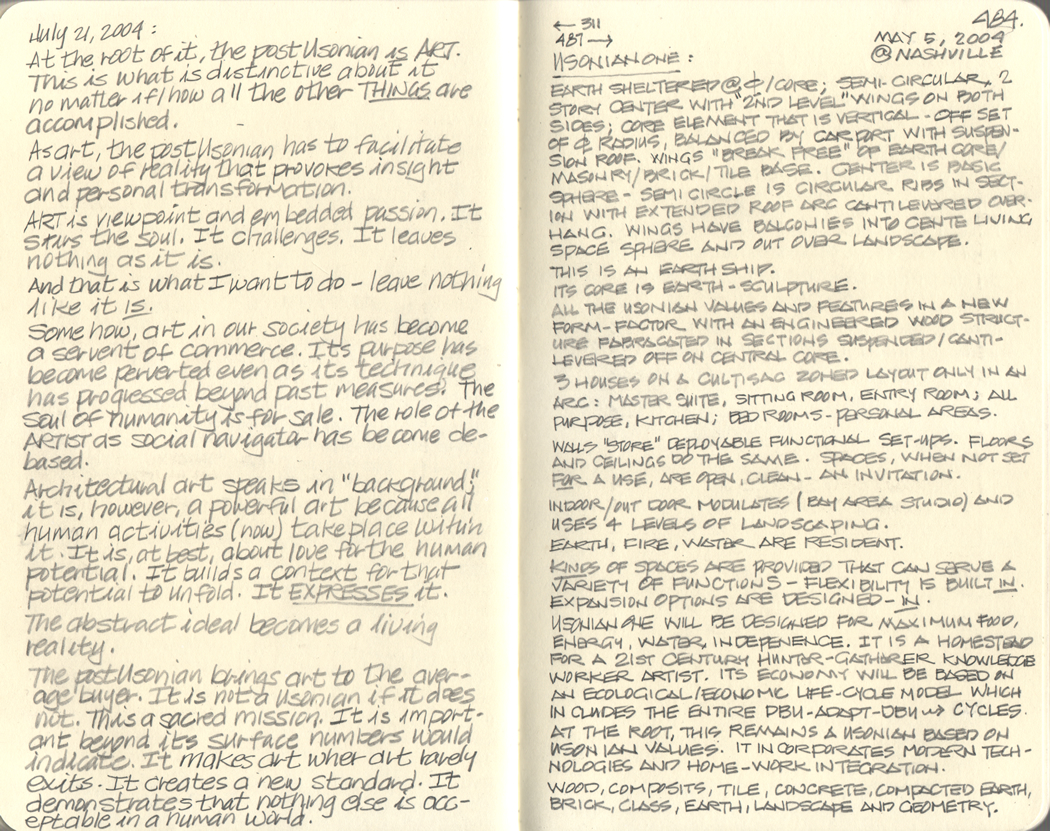 July 21, 2004 :
At the root of it, the post Usonian is ART.
This is what is distinctive about it
no matter if/how all the other THINGS are
accomplished.
As art, the post Usonian has to facilitate
a view of reality that provokes insight
and personal transformation.
ART is viewpoint and embedded passion. It
stirs the soul. It challenges. It leaves
nothing as it is.
And that is what I want to do - leave nothing
like it is.
Some how, art in our society has become
a servent of commerce. Its purpose has
become perverted even as its technique
has progressed beyond past measures. The
soul of humanity is for sale. The role of the
ARTIST as social navigator has become de-
based.
Architectural art speaks in "background";
it is, however, a powerful art because all
human activities (now) take place within
it. It is, at best, about love for the human
potential. It builds a context for that
potential to unfold. It EXPRESSES it.
The abstract ideal becomes a living
reality.
The post Usonian brings art to the aver-
age buyer. It is not a Usonian if it does
not. This a sacred mission. It is import-
ant beyond its surface numbers would
indicate. It makes art wher art barely
exits. It creates a new standard. It
demonstrates that nothing else is acc-
eptable in a human world.
← 311
487 →
484.
MAY 5, 2004
@ NASHVILLE
USONIAN ONE :
EARTH SHELTERED @ ⊄/CORE; SEMI-CIRCULAR, 2
STORY CENTER WITH "2ND LEVEL" WINGS ON BOTH
SIDES; CORE ELEMENT THAT IS VERTICAL - OFF SET
OF ⊄ RADIUS, BALANCED BY CAR PORT WITH SUSPEN-
SION ROOF. WINGS "BREAK FREE" OF EARTH CORE/
MASONRY/BRICK/TILE BASE. CENTER IS BASIC
SPHERE - SEMI CIRCLE IS CIRCULAR RIBS IN SECT-
ION WITH EXTENDED ROOF ARC CANTILEVERED OVER-
HANG. WINGS HAVE BALCONIES INTO CENTE LIVING
SPACE SPHERE AND OUT OVER LANDSCAPE.
THIS IS AN EARTH SHIP.
ITS CORE IS EARTH - SCULPTURE.
ALL THE USONIAN VALUES AND FEATURES IN A NEW
FORM-FACTOR WITH AN ENGINEERED WOOD STRUCT-
URE FABRACATED IN SECTIONS SUSPENDED/CANTI-
LEVERED OFF ON CENTRAL CORE.
3 HOUSES ON A CULTISAC ZONED LAYOUT ONLY IN AN
ARC: MASTER SUITE, SITTING ROOM, ENTRY ROOM; ALL
PURPOSE, KITCHEN; BED ROOMS - PERSONAL AREAS.
WALLS "STORE" DEPLOYABLE FUNCTIONAL SET-UPS. FLOORS
AND CEILINGS DO THE SAME. SPACES, WHEN NOT SET
FOR A USE, ARE OPEN, CLEAN - AN INVITATION.
INDOOR/OUT DOOR MODULATES (BAY AREA STUDIO) AND
USES 4 LEVELS OF LANDSCAPING.
EARTH, FIRE, WATER ARE RESIDENT.
KINDS OF SPACES ARE PROVIDED THAT CAN SERVE A
VARIETY OF FUNCTIONS - FLEXIBILITY IS BUILT IN.
EXPANSION OPTIONS ARE DESIGNED - IN.
USONIAN ONE WILL BE DESIGNED FOR MAXIMUM FOOD,
ENERGY, WATER, INDEPENENCE. IT IS A HOMESTEAD
FOR A 21ST CENTURY HUNTER-GATHARER KNOWLEDGE
WORKER ARTIST. ITS ECONOMY WILL BE BASED ON
AN ECOLOGICAL/ECONOMIC LIFE-CYCLE MODEL WHICH
INCLUDES THE ENTIRE DBU-ADAPT-DBU → CYCLES.
AT THE ROOT, THIS REMAINS A USONIAN BASED ON
USONIAN VALUES. IT INCORPORATES MODERN TECH-
NOLOGIES AND HOME-WORK INTEGRATION.
WOOD, COMPOSITS, TILE, CONCRETE, COMPACTED EARTH,
BRICK, GLASS, EARTH, LANDSCAPE AND GEOMETRY.